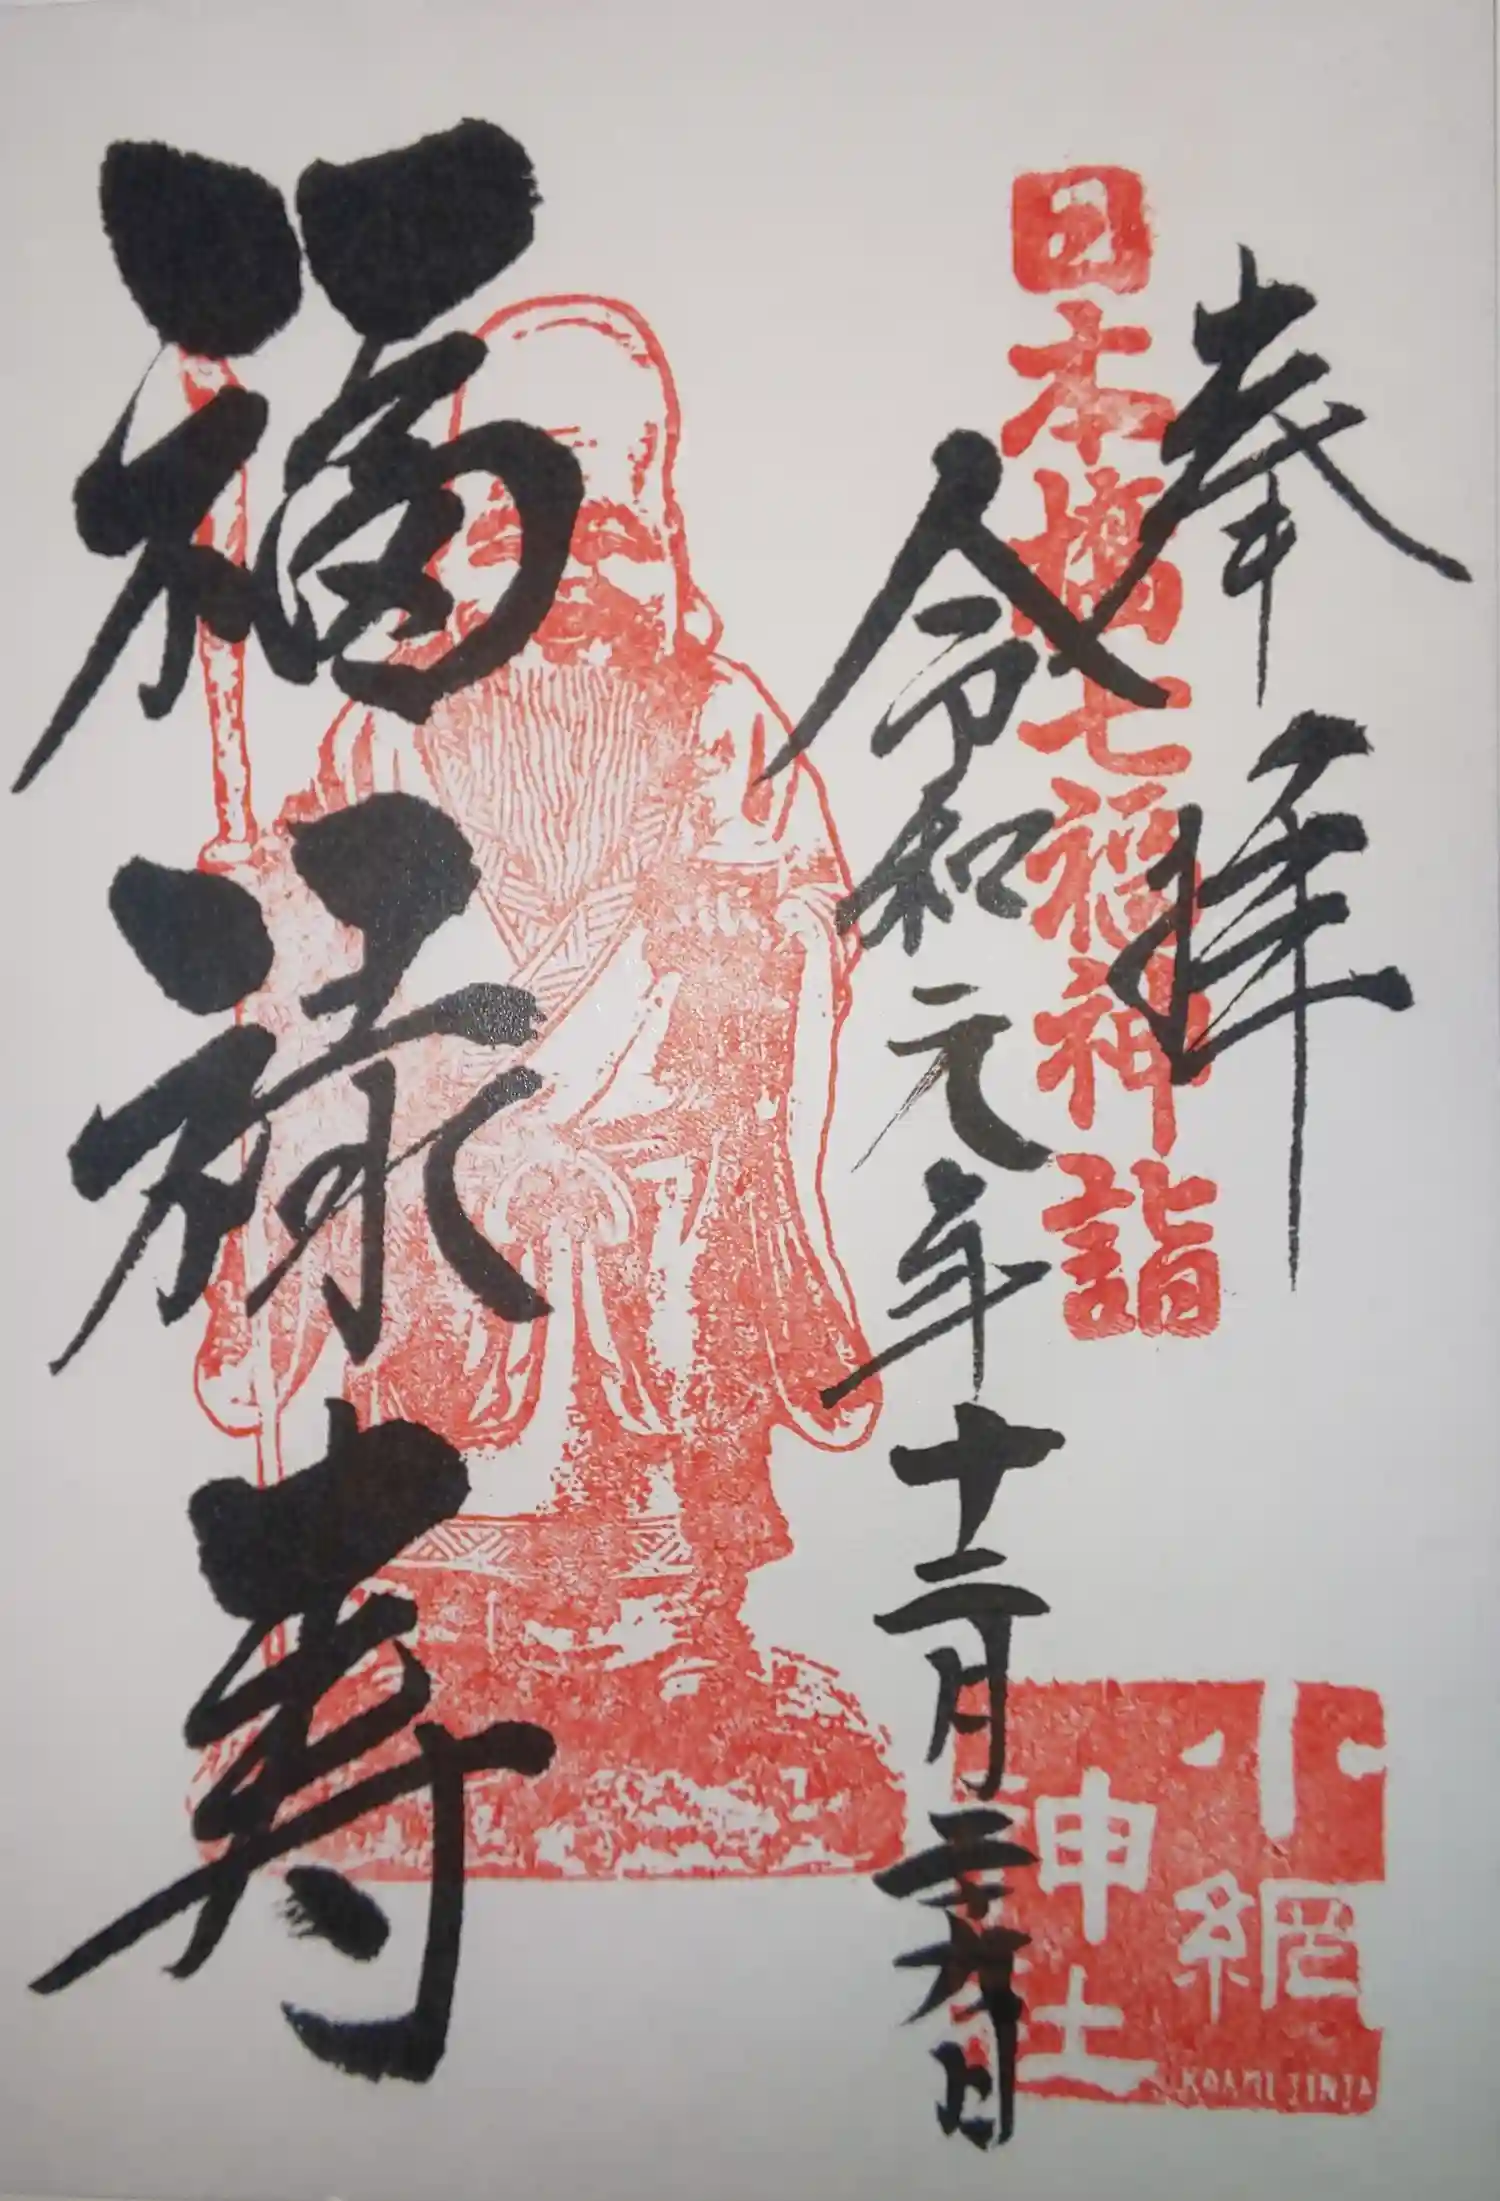 奉拝
日本橋七福神詣
令和元年十二月二十九日
福禄寿
小網
神社
KOAMI JINJA